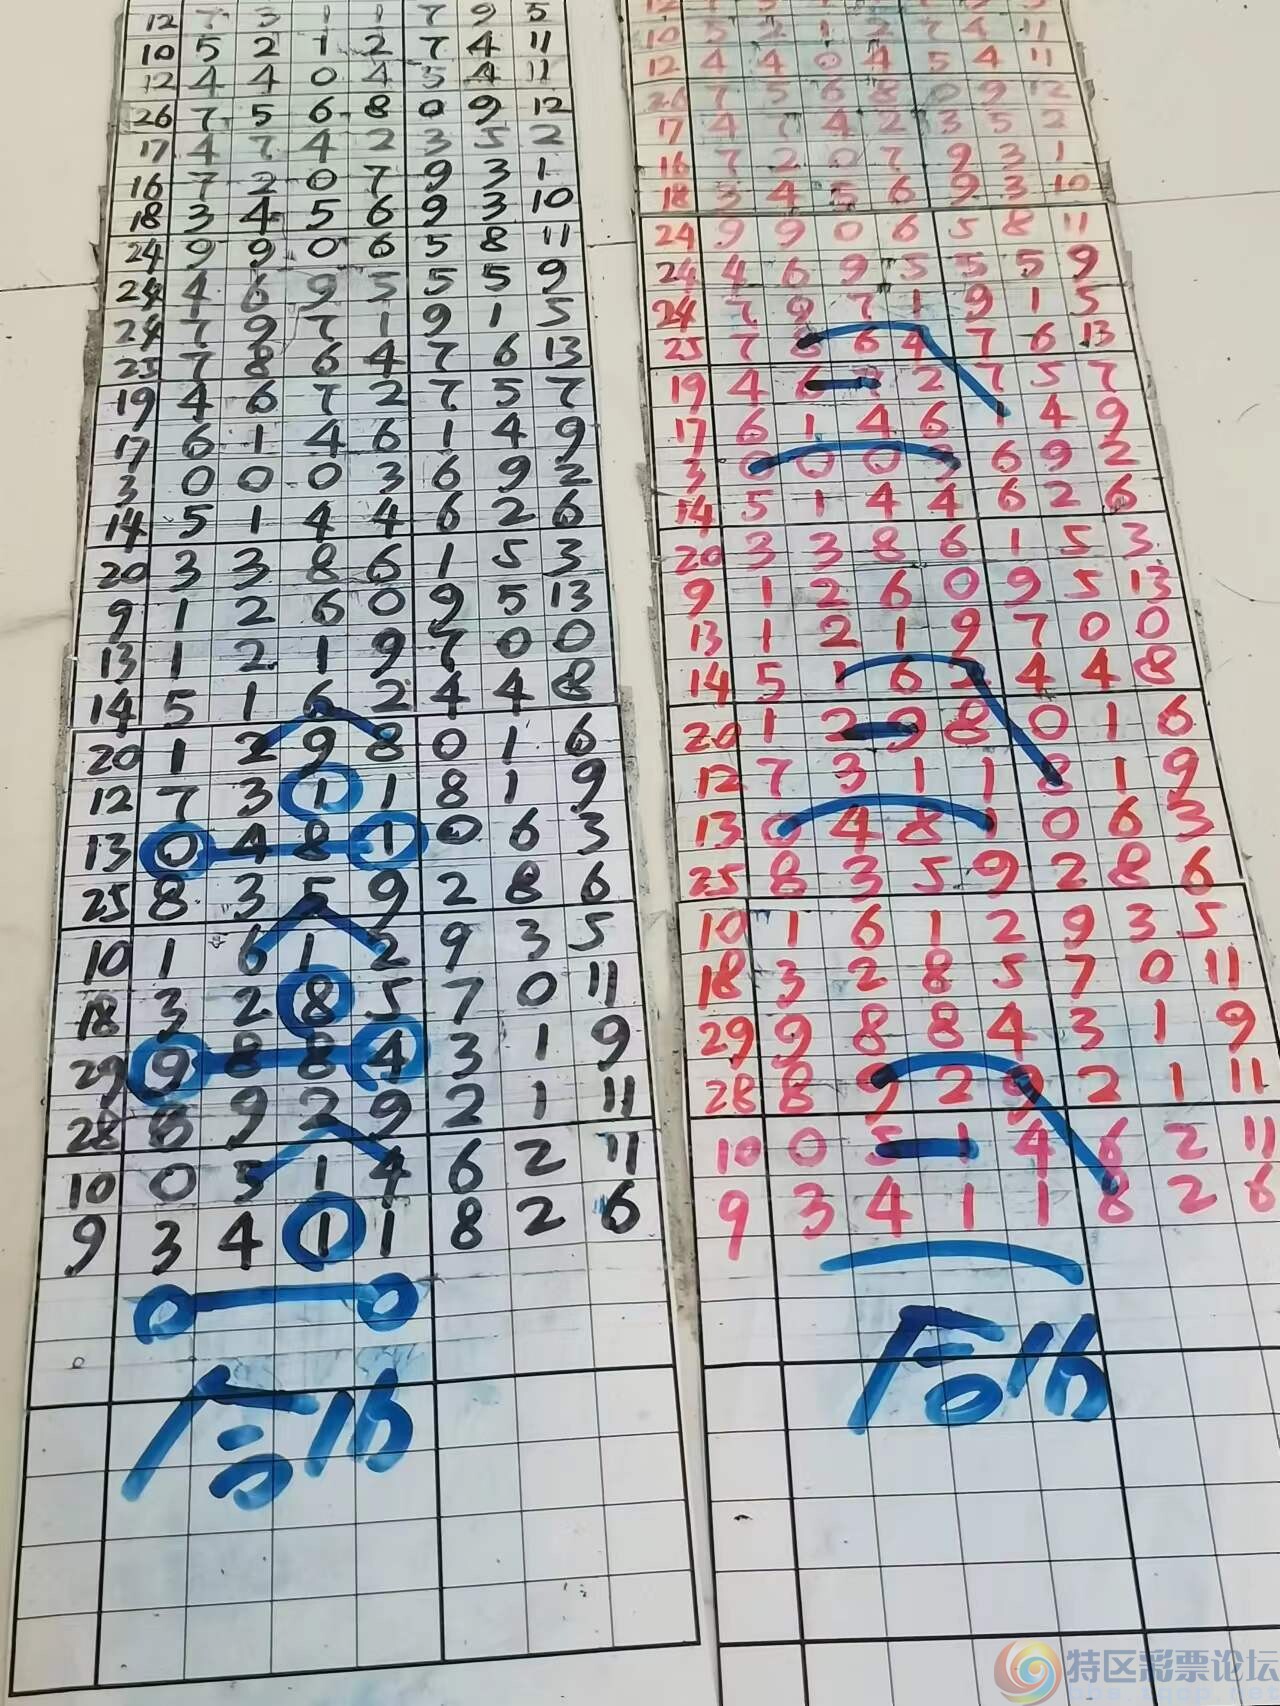 12 7 3 1 1 7 9 5
10 5 2 1 2 7 4 11
12 4 4 0 4 5 4 11
26 7 5 6 8 0 9 12
17 4 7 4 2 3 5 2
16 7 2 0 7 9 3 1
18 3 4 5 6 9 3 10
24 9 9 0 6 5 8 11
24 4 6 9 5 5 5 9
24 7 9 7 1 9 1 5
25 7 8 6 4 7 6 13
19 4 6 7 2 7 5 7
17 6 1 4 6 1 4 9
3 0 0 0 3 6 9 2
14 5 1 4 4 6 2 6
20 3 3 8 6 1 5 3
9 1 2 6 0 9 5 13
13 1 2 1 9 7 0 0
14 5 1 6 2 4 4 8
20 1 2 9 8 0 1 6
12 7 3 1 1 8 1 9
13 0 4 8 1 0 6 3
25 8 3 5 9 2 8 6
10 1 6 1 2 9 3 5
18 3 2 8 5 7 0 11
29 9 8 8 4 3 1 9
28 8 9 2 9 2 1 11
10 0 5 1 4 6 2 11
9 3 4 1 1 8 2 6
10 5 2 1 2 7 4 11
12 4 4 0 4 5 4 11
26 7 5 6 8 0 9 12
17 4 7 4 2 3 5 2
16 7 2 0 7 9 3 1
18 3 4 5 6 9 3 10
24 9 9 0 6 5 8 11
24 4 6 9 5 5 5 9
24 7 9 7 1 9 1 5
25 7 8 6 4 7 6 13
19 4 6 7 2 7 5 7
17 6 1 4 6 1 4 9
3 0 0 0 3 6 9 2
14 5 1 4 4 6 2 6
20 3 3 8 6 1 5 3
9 1 2 6 0 9 5 13
13 1 2 1 9 7 0 0
14 5 1 6 2 4 4 8
20 1 2 9 8 0 1 6
12 7 3 1 1 8 1 9
13 0 4 8 1 0 6 3
25 8 3 5 9 2 8 6
10 1 6 1 2 9 3 5
18 3 2 8 5 7 0 11
29 9 8 8 4 3 1 9
28 8 9 2 9 2 1 11
10 0 5 1 4 6 2 11
9 3 4 1 1 8 2 6
特区彩票论坛